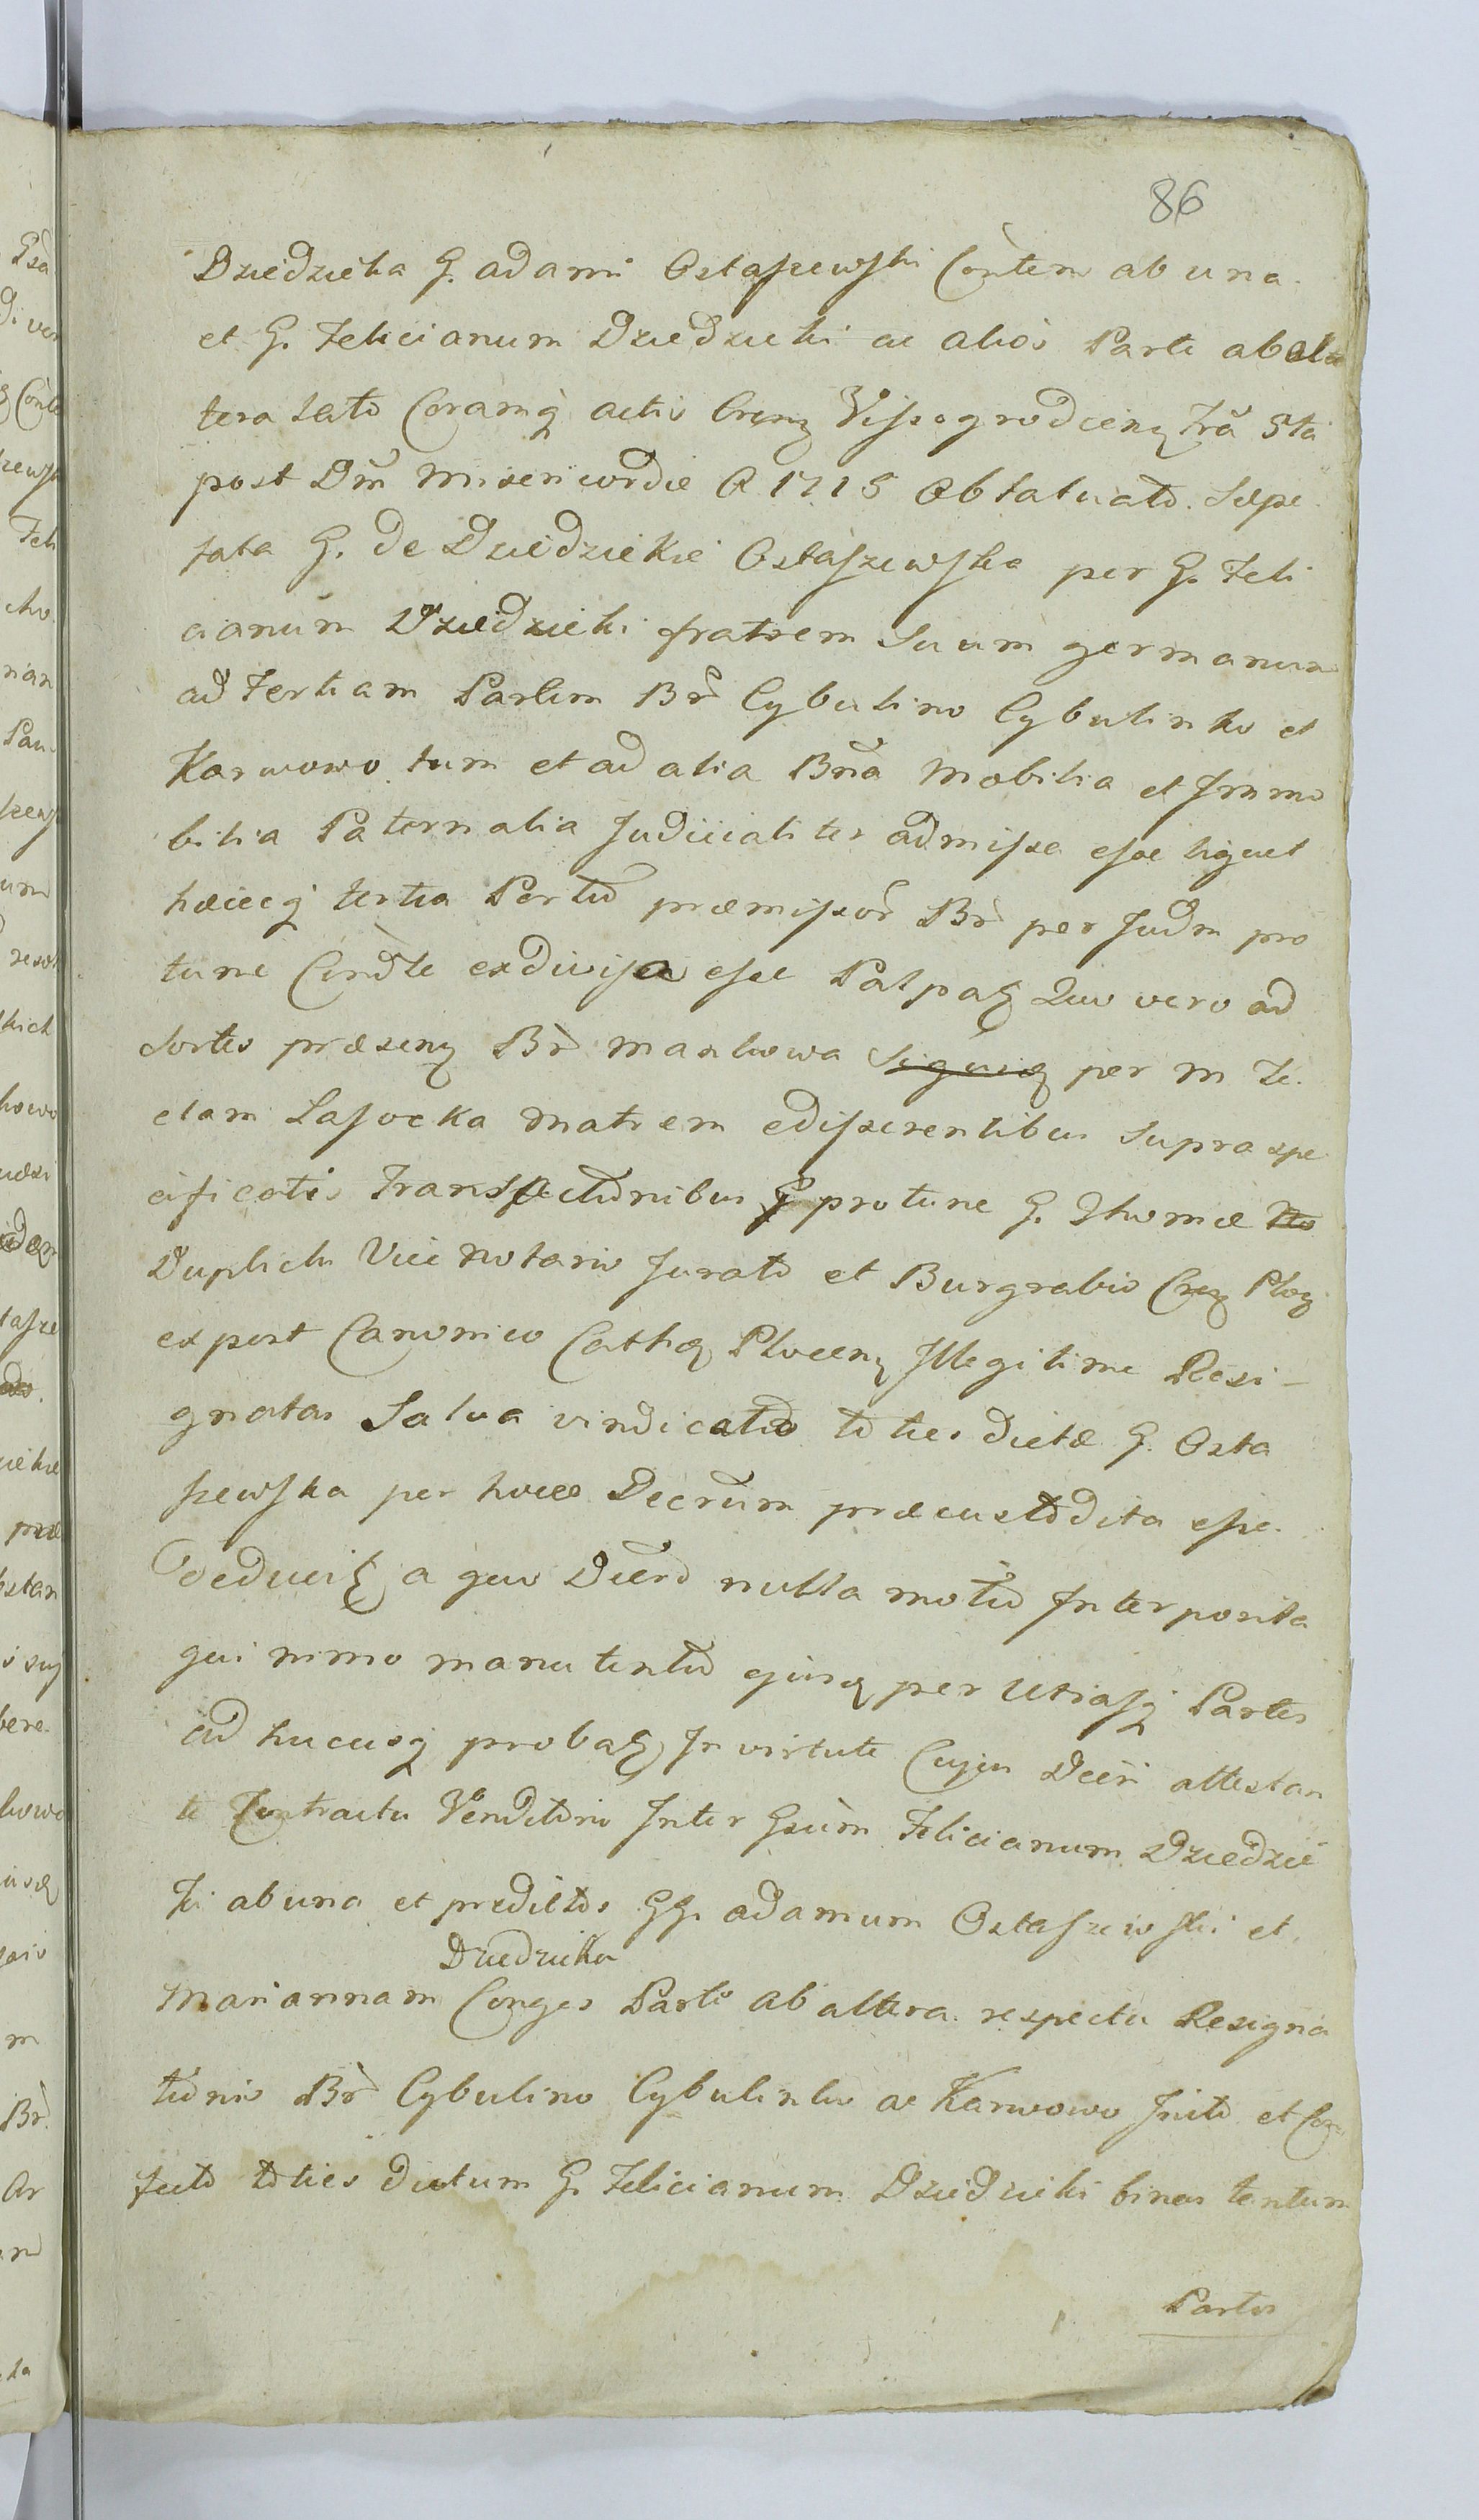 86
Dziedzicka G. Adami Ostaszewski Contem ab una
et G. Felicianum Dziedzicki ac alios Parte ab al
tera lato Coramq actis Crenz Vissogrodcien fra 5ta
post Dm Misericordiæ A 1715 Oblatuato. Sæpe
fata G. De Dziedzickie Ostaszewska per G. Feli
cianum Dziedzicki fratrem Suum germanum
ad Tertiam Partem Br Cybulino Cybulinko et
Karwowo tum et ad alia Bna Mobilia et Immo
bilia Paternalia Judicialiter admissa esse liquet
hæcecq tertia Portio præmissor Br per Judm pro
tunc Condle exdivisa esse Palpat Quo vero ad
Sortes præsen Br Mankowa per M Te
clam Lasocka Matrem edisserentibus supra spe
cificatis Transactionibus protunc G. Thomæ
Duplicki Vice Notario Jurato et Burgrabio Crenz Plocz
expost Canonico Cathed Plocenz Illegitime Resi-
gnatas Salva vindicatio toties dictæ G. Osta
szewska per hocce Decrum præcustodita esse
Deducit a quo Dcero nulla motio Interposita
qui nimo manutentio ejusq per Utrasq Partes
ad hucusq probat, In virtute Cujus Dceri attestan
te Contractu Venditionis Inter Gsum Felicianum Dziedzic
ki ab una et prædictos GG. Adamum Ostaszewski et
Dziedzicka
Mariannam Conges Parte ab altera respectu Resigna
tionis Br Cybulino Cybulinko ac Karwowo Inito et Con
fecto toties dictum G. Felicianum Dziedzicki binas tantum
Partes